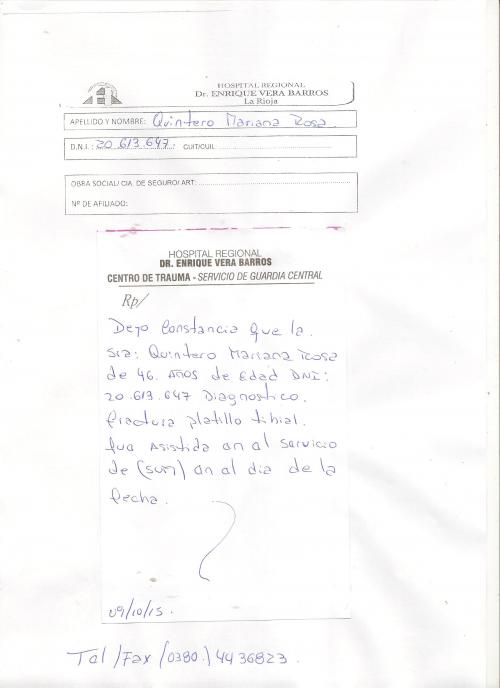 HOSPITAL REGIONAL
Dr. ENRIQUE VERA BARROS
La Rioja
APELLIDO Y NOMBRE: Quintero Mariana Rosa
D.N.I.: 20.613.647. CUIT/CUIL
OBRA SOCIAL/ CIA. DE SEGURO/ ART:
Nº DE AFILIADO:
HOSPITAL REGIONAL
DR. ENRIQUE VERA BARROS
CENTRO DE TRAUMA - SERVICIO DE GUARDIA CENTRAL
Rp/
Dejo Constancia que la.
Sra: Quintero Mariana Rosa
de 46. Años de Edad DNI:
20.613.647 Diagnostico.
fractura platillo tibial.
fue Asistida en el servicio
de (sum) en el dia de la
fecha.
09/10/15.
Tel/Fax (0380.) 4436823.